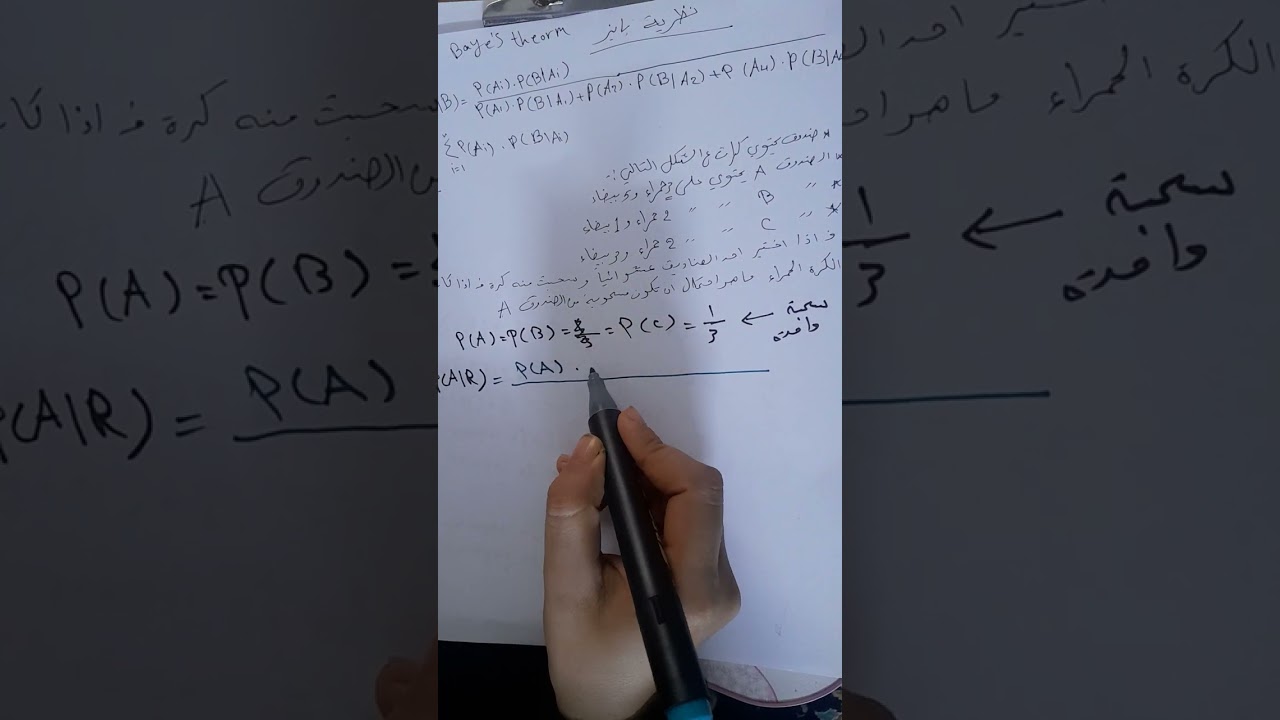 Baye's theorm نظرية بايز
B) = P(A₁).P(B|A₁) / P(A₁).P(B|A₁)+P(A₂).P(B|A₂)+P(A4).P(B|A
Σ i=1 P(Ai).P(B|Ai)
* صندوق يحتوي كرات ع الشكل التالي :-
الصندوق A يحتوي على حمراء و بيضاء
* " B " " 2 حمراء و 1 بيضاء
* " C " " 2 حمراء و بيضاء
فاذا اختير احد الصناديق عشوائياً وسحبت منه كرة فاذا كا
الكرة الحمراء ماهو احتمال ان تكون مسحوبة من الصندوق A
P(A)=P(B)= = P(C) = 1/3 ← سحبة واحدة
(A|R) = P(A) .